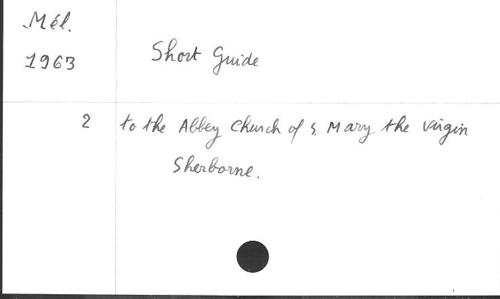 Mél.
1963
Short Guide
2 to the Abbey Church of S. Mary the Virgin
Sherborne.